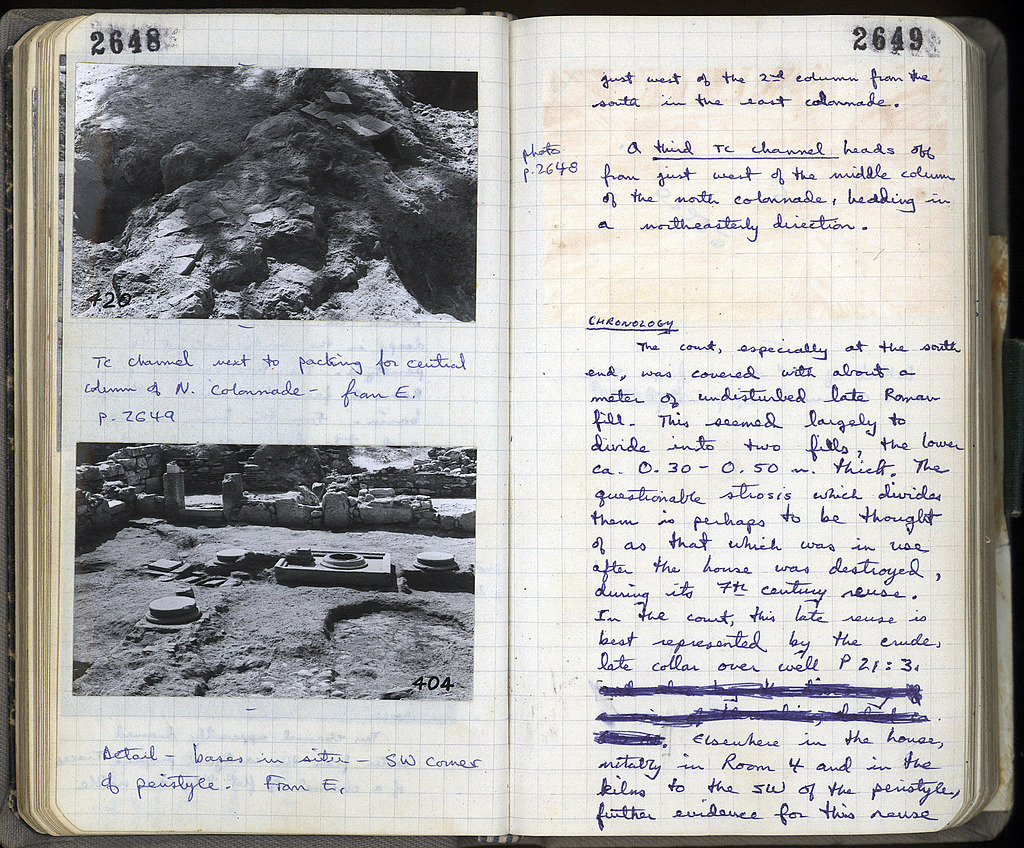 2648
420
Tc channel next to packing for central
column of N. Colonnade - from E.
p. 2649
404
Detail - bases in situ - SW corner
of peristyle. From E.
2649
just west of the 2nd column from the
south in the east colonnade.
photo
p. 2648
A third TC channel heads off
from just west of the middle column
of the north colonnade, heading in
a northeasterly direction.
CHRONOLOGY
The court, especially at the south
end, was covered with about a
meter of undisturbed late Roman
fill. This seemed largely to
divide into two fills, the lower
ca. 0.30 - 0.50 m. thick. The
questionable strosis which divides
them is perhaps to be thought
of as that which was in use
after the house was destroyed,
during its 7th century reuse.
In the court, this late reuse is
best represented by the crude,
late collar over well P 21:3.
Elsewhere in the house,
notably in Room 4 and in the
kilns to the SW of the peristyle,
further evidence for this reuse